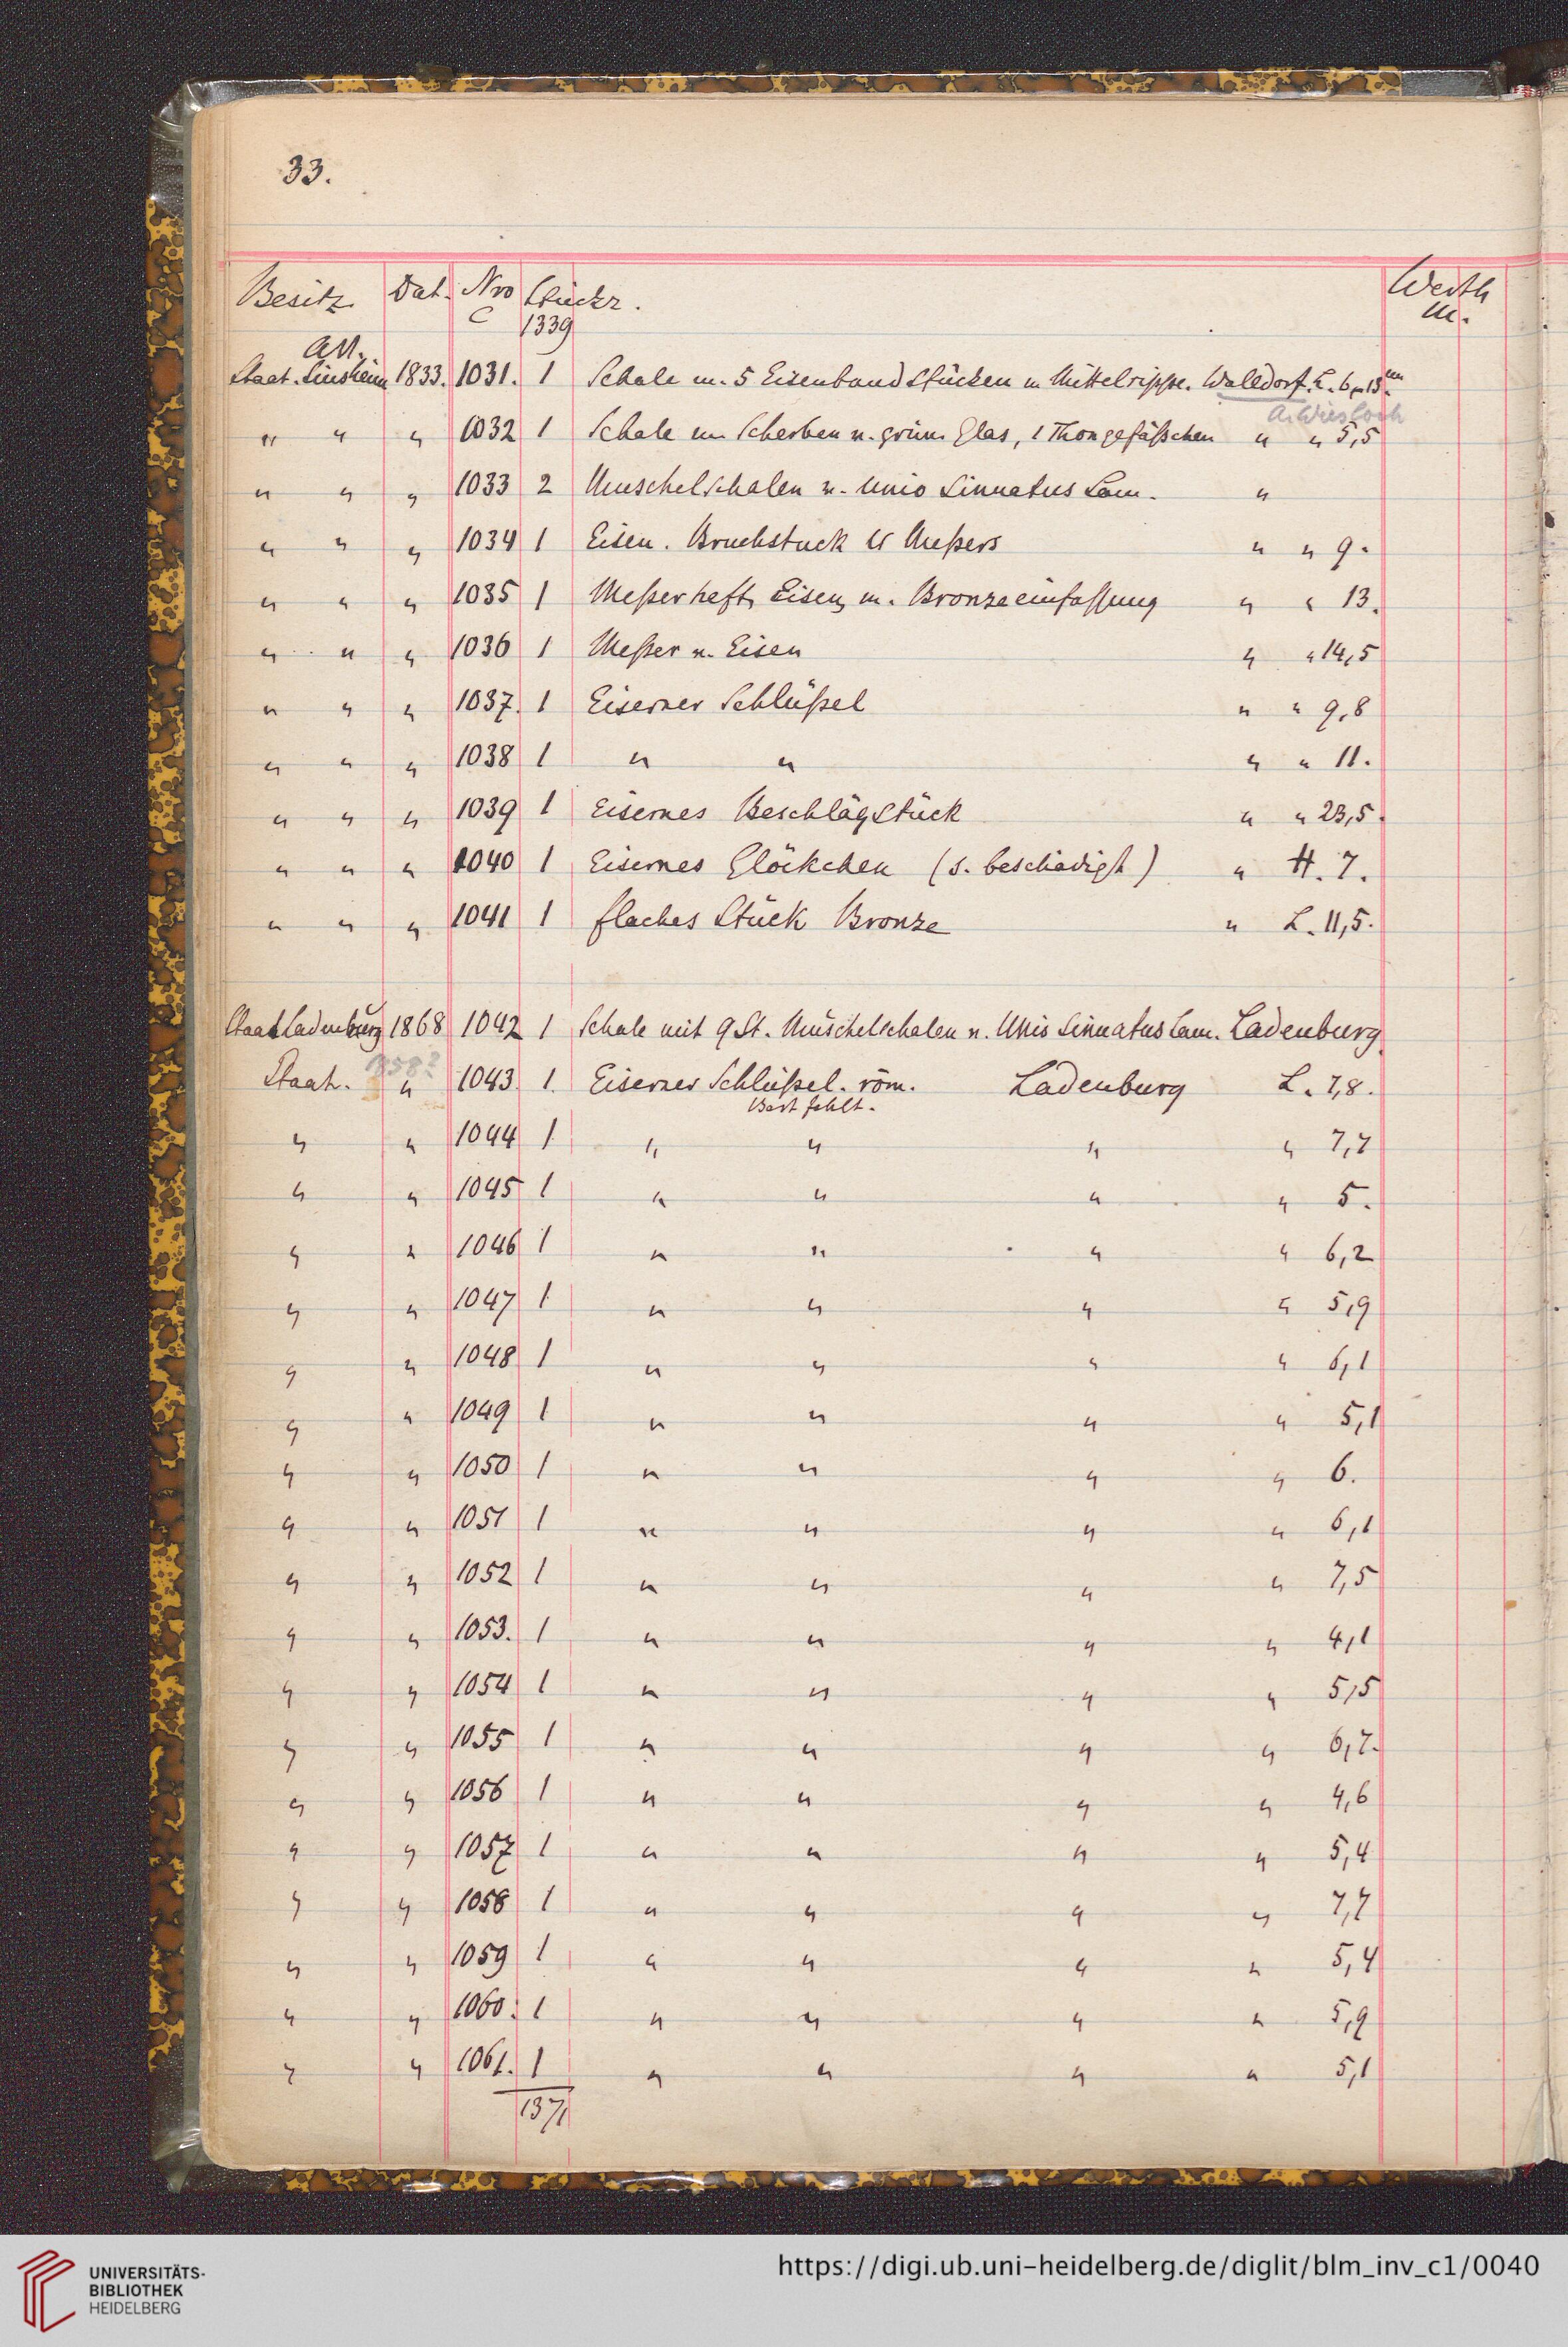 33.
Besitz. Dat. Nro Stückz. Werth
C 1339 M.
Alt.
Staat. Sinsheim 1833. 1031. 1 Schale m. 5 Eisenband Stücken m Mittelrippe. Walldorf. L. 6-13 cm
A. Wiesloch
" " " 1032 1 Schale m Scherben v. grün. Glas, 1 Thongefäßchen " " 5,5
" " " 1033 2 Muschelschalen v. Unio Sinuatus Lam. "
" " " 1034 1 Eisen. Bruchstuck es Meßers " " 9.
" " " 1035 1 Meßerheft, Eisen, m. Bronzeeinfassung " " 13.
" " " 1036 1 Meßer v. Eisen " " 14,5
" " " 1037. 1 Eiserner Schlüßel " " 9,8
" " " 1038 1 " " " " 11.
" " " 1039 1 Eisernes Beschlägstück " " 23,5.
" " " 1040 1 Eisernes Glöckchen (s. beschädigt) " H. 7.
" " " 1041 1 flaches Stück Bronze " L. 11,5.
Staat Ladenburg 1868 1042 1 Schale mit 9 St. Muschelschalen v. Unio Sinuatus Lam. Ladenburg
1858?
Staat. " 1043 1. Eiserner Schlüßel. röm. Ladenburg L. 7,8.
Bart fehlt.
" " 1044 1 " " " " 7,7
" " 1045 1 " " " " 5.
" " 1046 1 " " " " 6,2
" " 1047 1 " " " " 5,9
" " 1048 1 " " " " 6,1
" " 1049 1 " " " " 5,1
" " 1050 1 " " " " 6.
" " 1051 1 " " " " 6,1
" " 1052 1 " " " " 7,5
" " 1053. 1 " " " " 4,1
" " 1054 1 " " " " 5,5
" " 1055 1 " " " " 6,7.
" " 1056 1 " " " " 4,6
" " 1057 1 " " " " 5,4
" " 1058 1 " " " " 7,7
" " 1059 1 " " " " 5,4
" " 1060. 1 " " " " 5,9
" " 1061. 1 " " " " 5,1
1371
UNIVERSITÄTS-
BIBLIOTHEK
HEIDELBERG
https://digi.ub.uni-heidelberg.de/diglit/blm_inv_c1/0040